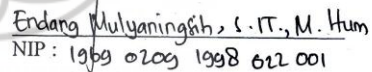 Endang Mulyaningsih, S.IT., M.Hum
NIP : 1969 0209 1998 022 001